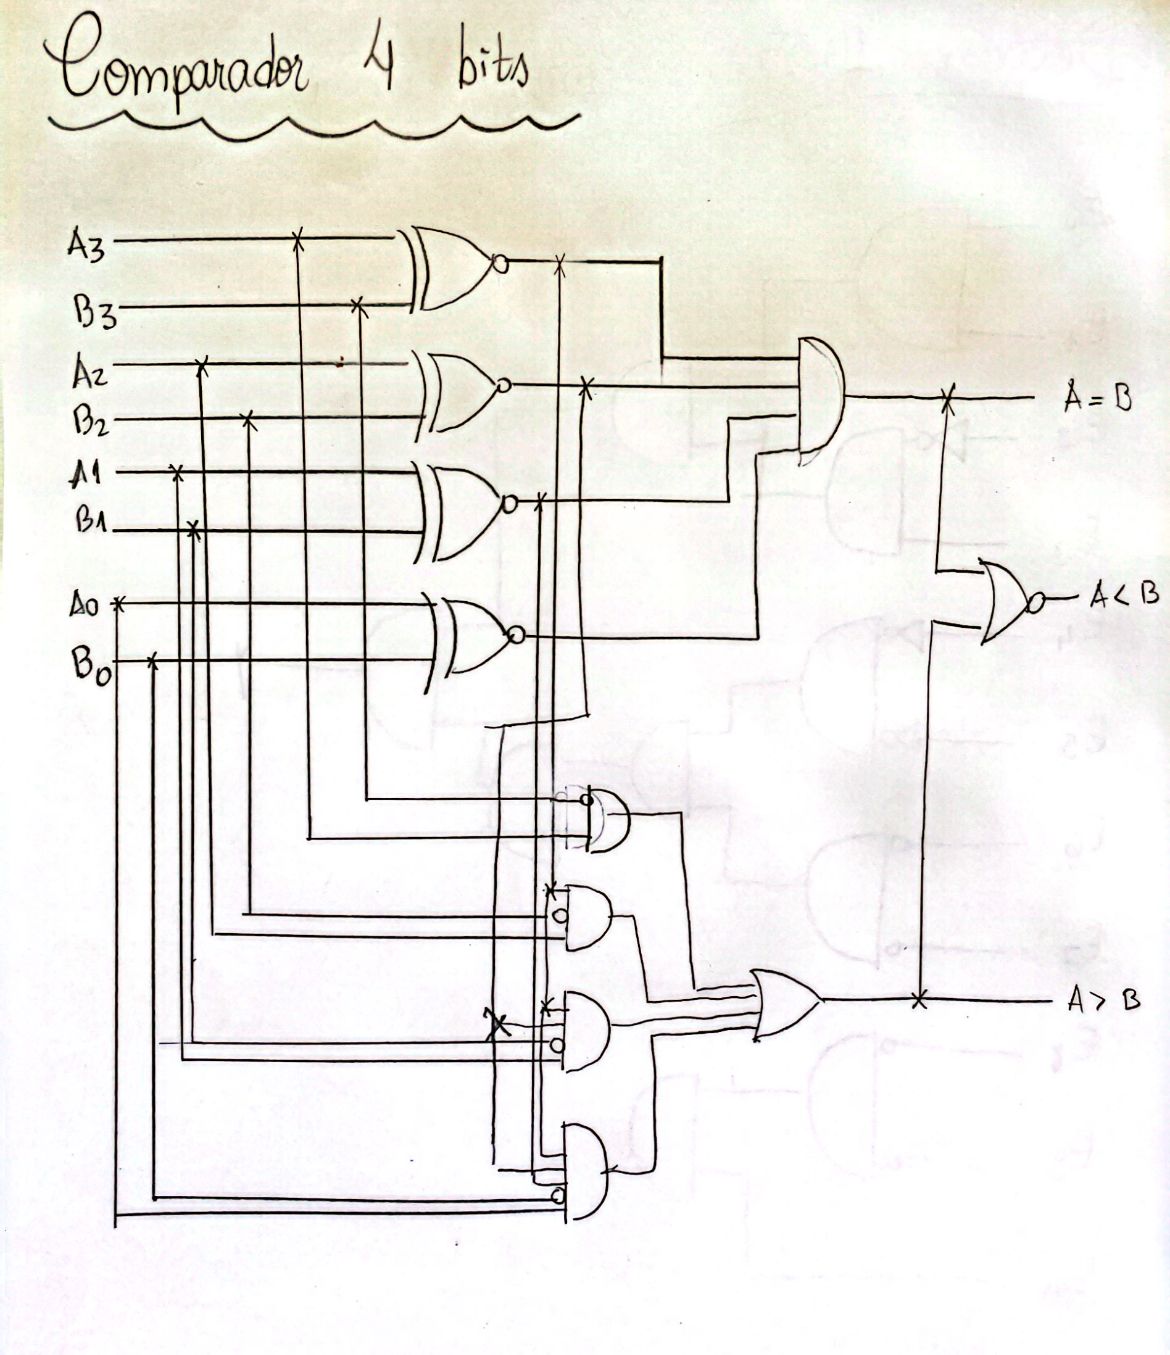 Comparador 4 bits
A3
B3
A2
B2
A1
B1
A0
B0
A = B
A < B
A > B